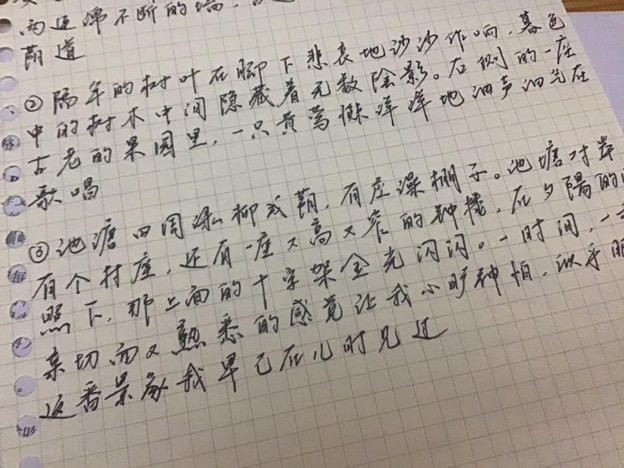 两边绵不断的墙，
荫道
② 隔年的树叶在脚下悲哀地沙沙作响，暮色
中的树木中间隐藏着无数阴影。右侧的一座
古老的果园里，一只黄莺懒洋洋地细声细气在
歌唱
③ 池塘四周绿柳成荫，有座澡棚子。池塘对岸
有个村庄，还有一座又高又窄的钟楼，在夕阳的
照下，那上面的十字架金光闪闪。一时间，一
亲切而又熟悉的感觉让我心旷神怡，似乎眼
这番景象我早已在儿时见过